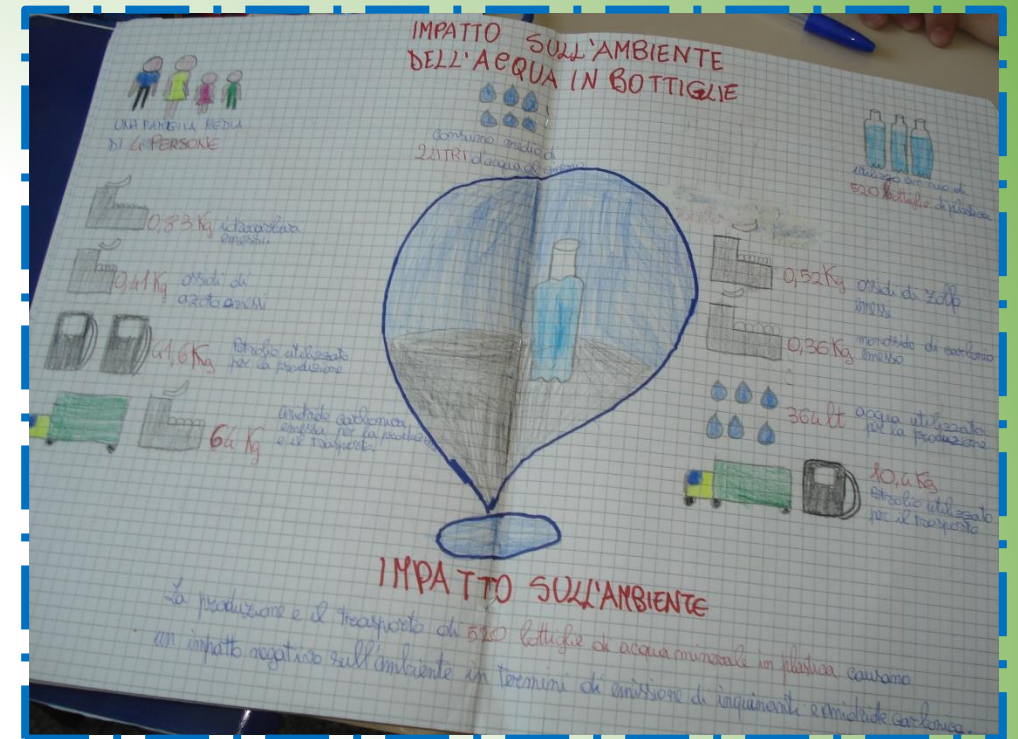 IMPATTO SULL'AMBIENTE
DELL'ACQUA IN BOTTIGLIE
UNA FAMIGLIA MEDIA
DI 4 PERSONE
consumo medio di
2 LITRI d'acqua al
520 bottiglie di plastica
0,83 Kg idrocarburi
emessi
0,41 Kg ossidi di
azoto emessi
41,6 Kg Petrolio utilizzato
per la produzione
64 Kg
anidride carbonica
emessa per la produzione
e il trasporto.
0,52 Kg ossidi di zolfo
emessi
0,36 Kg monossido di carbonio
emesso
364 lt acqua utilizzata
per la produzione
10,4 Kg
Petrolio utilizzato
per il trasporto
IMPATTO SULL'AMBIENTE
La produzione e il trasporto di 520 bottiglie di acqua minerale in plastica causano
un impatto negativo sull'ambiente in termini di emissione di inquinanti e anidride carbonica.